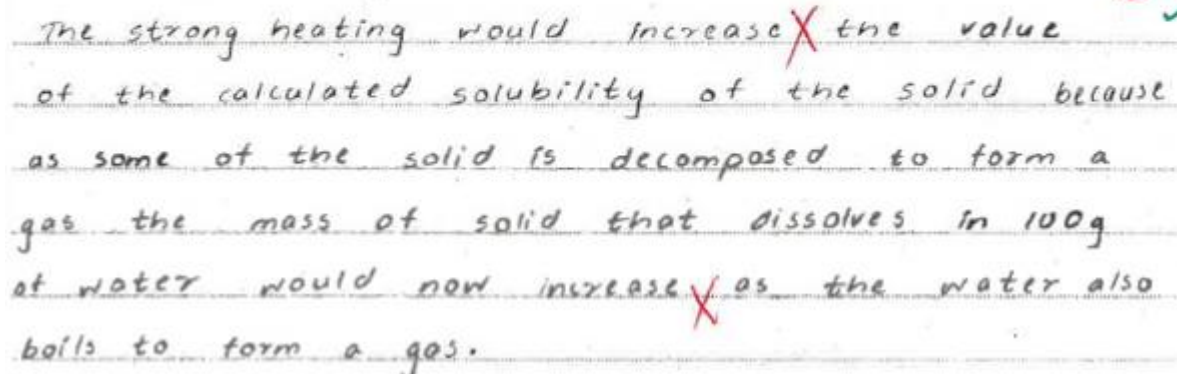 The strong heating would increase the value
of the calculated solubility of the solid because
as some of the solid is decomposed to form a
gas the mass of solid that dissolves in 100g
of water would now increase as the water also
boils to form a gas.